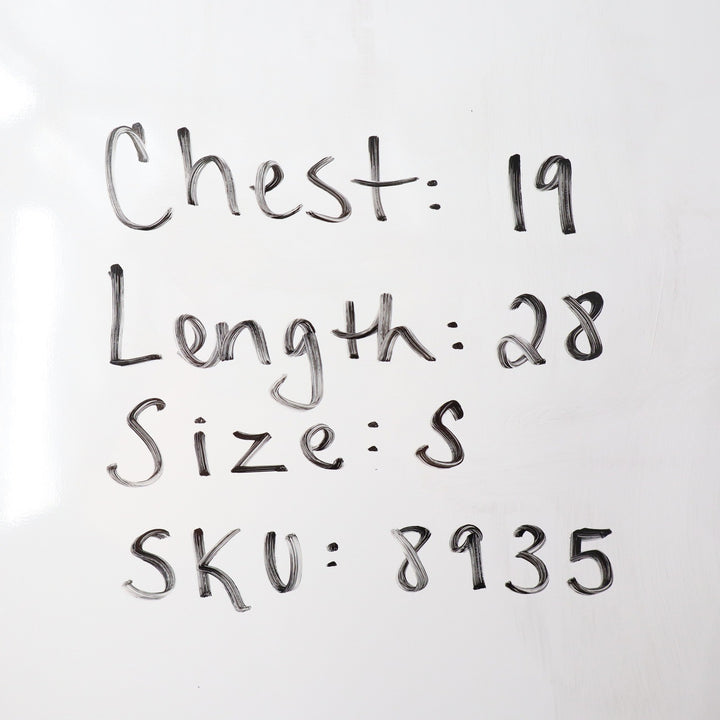 Chest: 19
Length: 28
Size: S
SKU: 8935